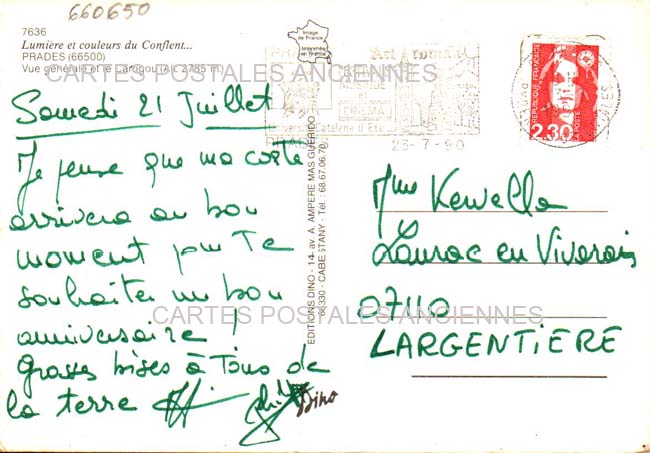 660650
7636
Lumière et couleurs du Conflent...
PRADES (66500)
Vue générale et le Canigou (Alt. 2785 m.)
CARTES POSTALES ANCIENNES
Image de France
Imprimé en France
Art roman
MUSIQUE
et
CINEMA
Université Catalana d'Eté
PRADES
23-7-90
REPUBLIQUE FRANÇAISE
LA POSTE
2,30
Samedi 21 Juillet
Je pense que ma carte
arrivera au bon
moment pour Te
souhaiter un bon
anniversaire !
Grosses bises à Tous de
la terre
Dino
EDITIONS DINO - 14, av. A. AMPERE MAS GUERIDO
66330 - CABESTANY - Tél. : 68.67.06.70
Mme Kewella
Laurac en Vivarais
07110
LARGENTIÈRE
CARTES POSTALES ANCIENNES